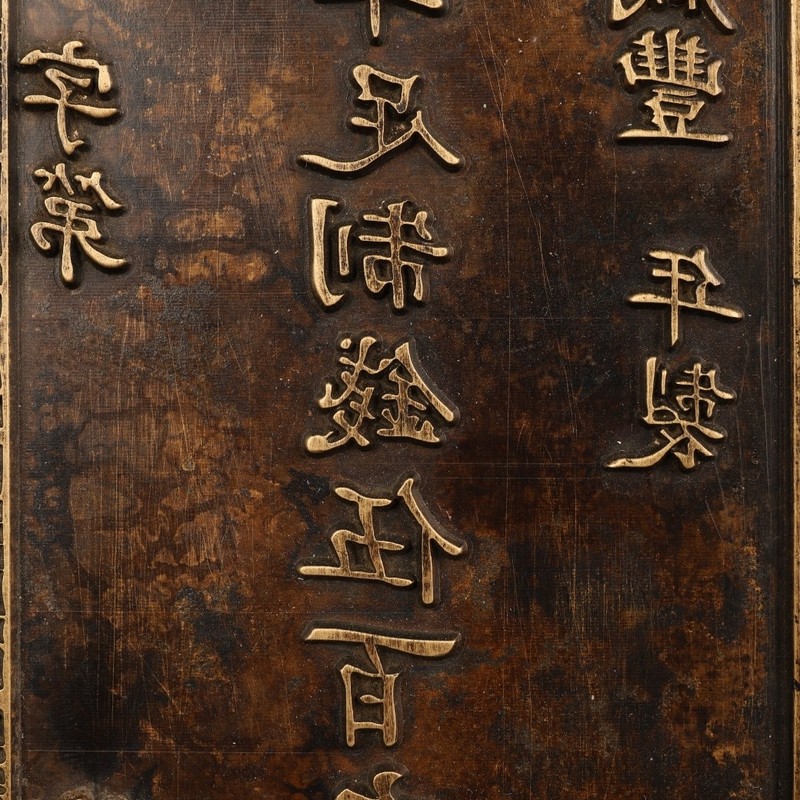 字第
足制錢伍百
豐 年製